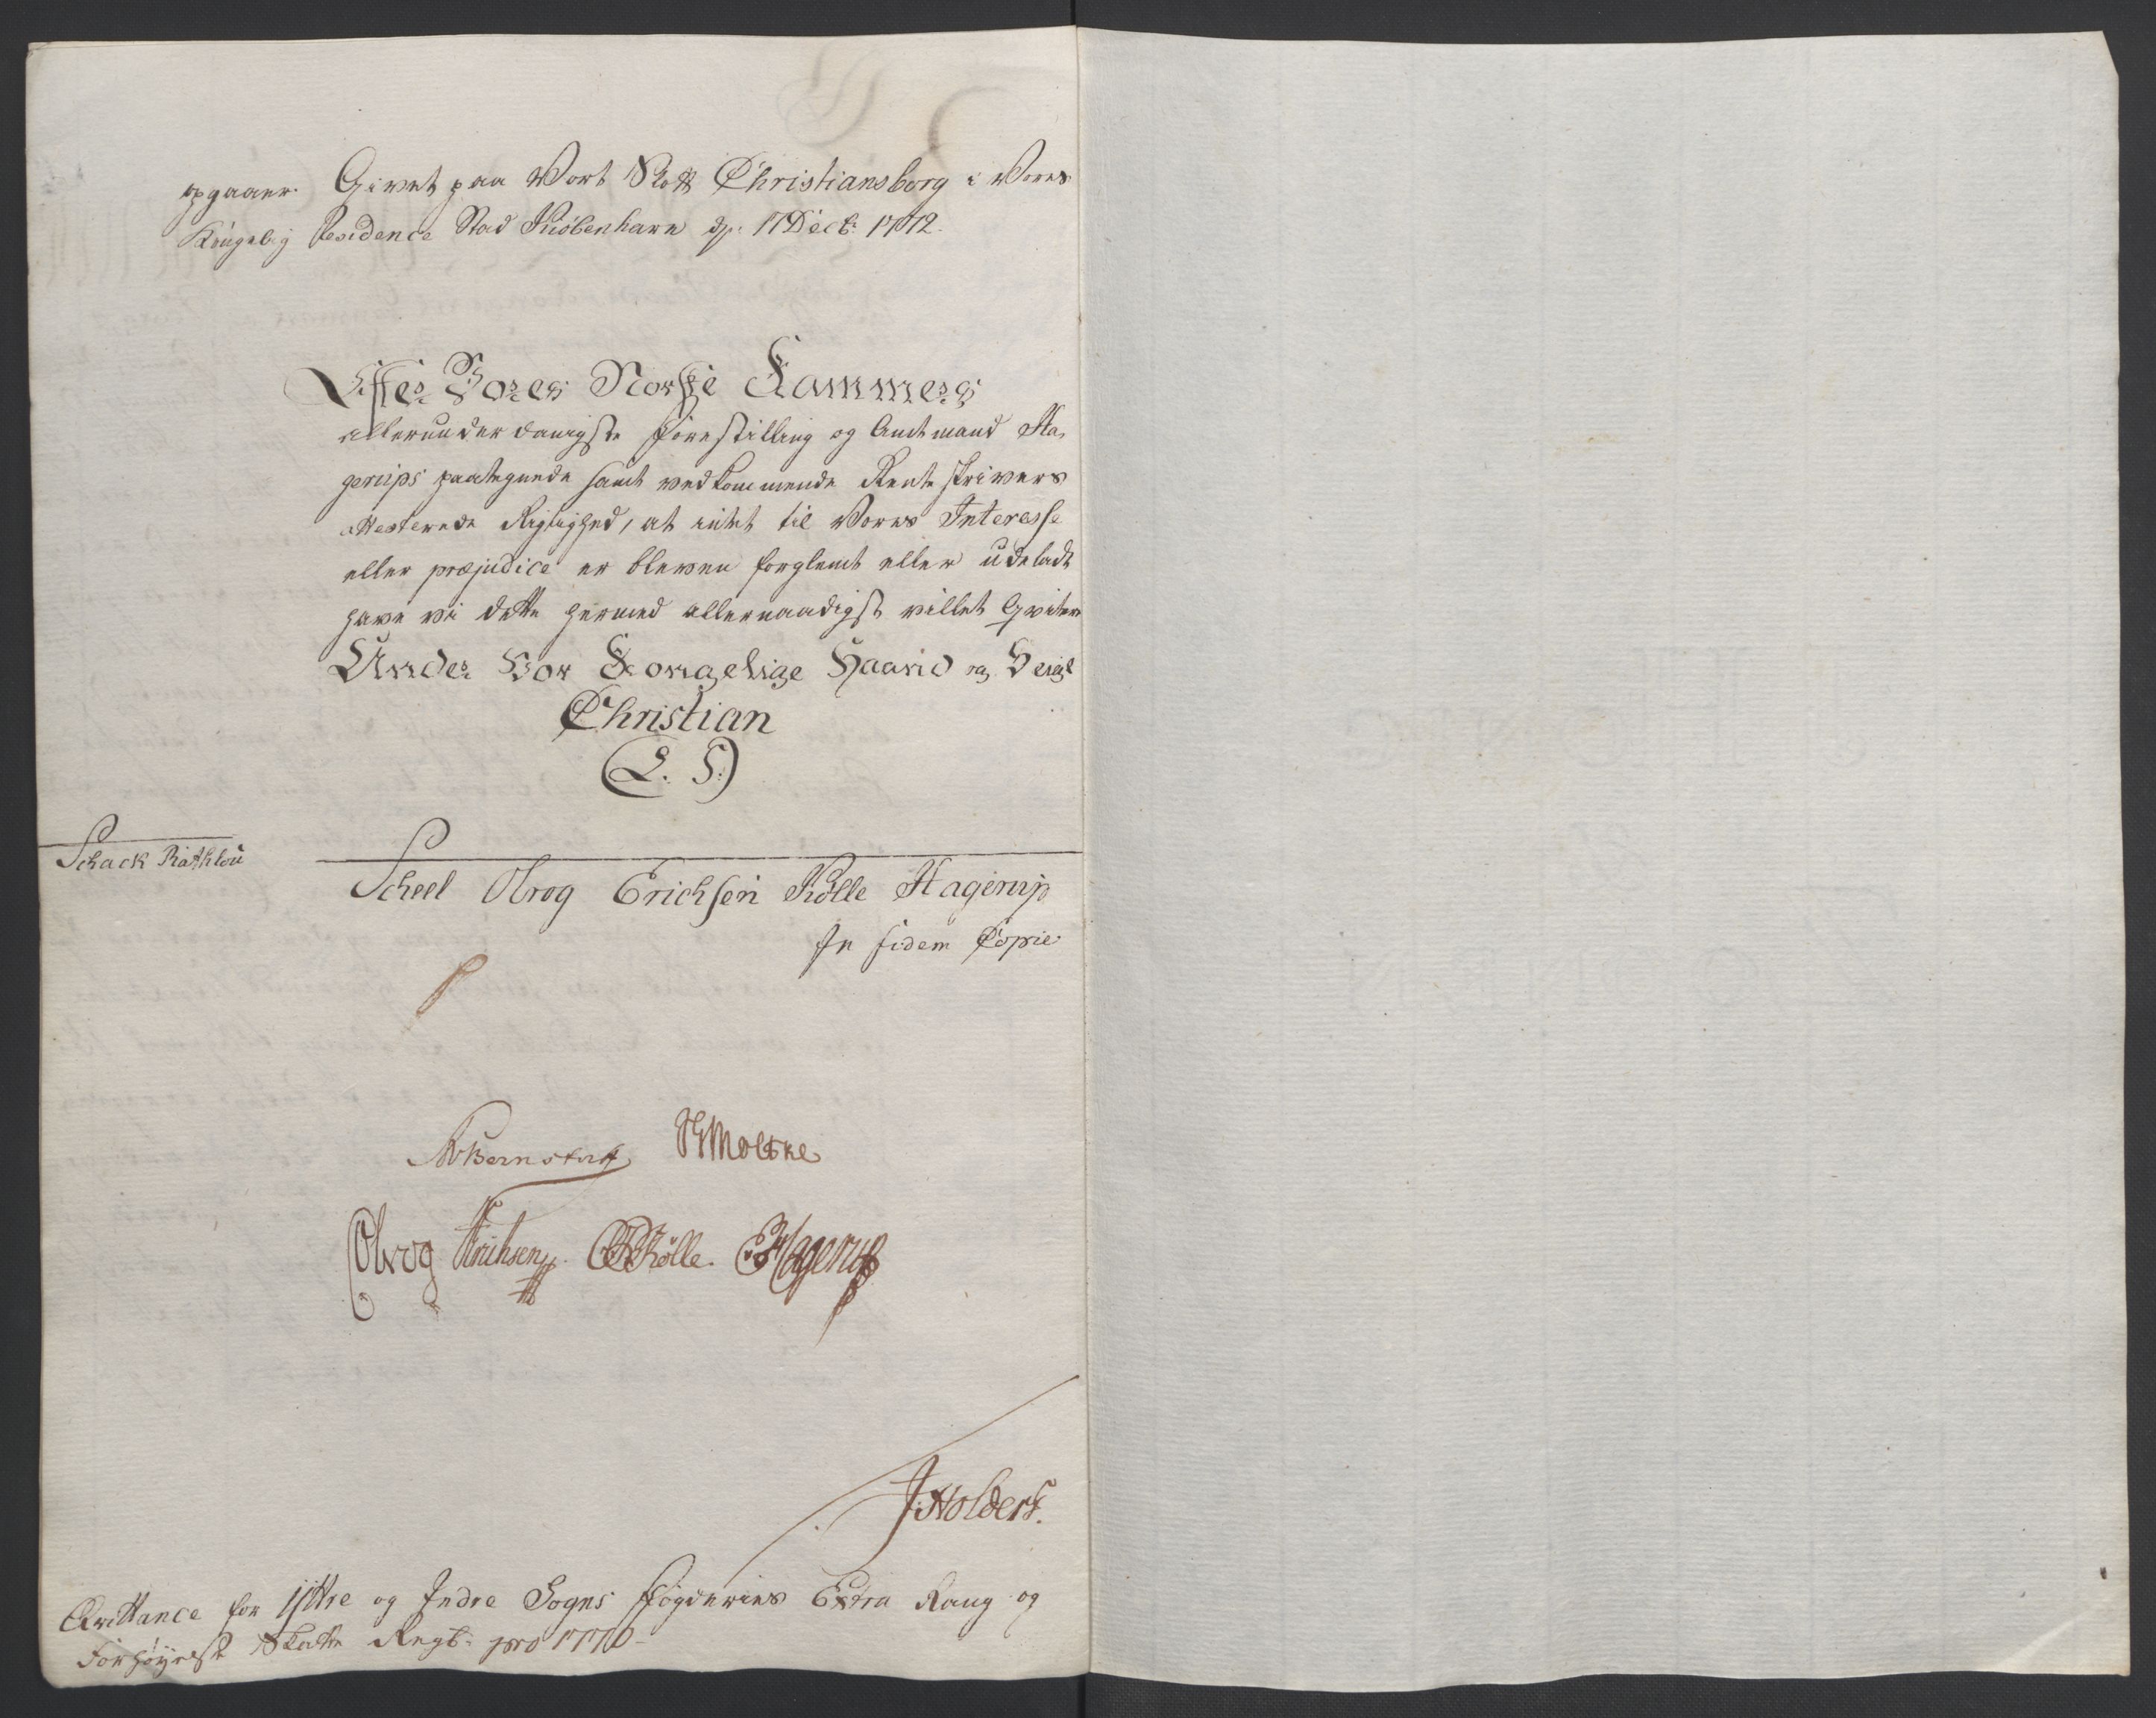 opgaaer. Givet paa Vort Slott Christiansborg i Vores
Kongelig Residence Stad Kiøbenhavn d. 17 Decb: 1772.
Efter Vores Norske Kammers
allerunderdanigste Forestilling og Amtmand Ha,
gerups paategnede samt vedkommende Renteskrivers
attesterede Rigtighed, at intet til Vores Interesse
eller præjudice er bleven forglemt eller udeladt
have vi dette hermed allernaadigst villet Qvitere
Under Vor Kongelige Haand og Seigl
Christian
(L. S.)
Schack Rathlou
Scheel Olrog Erichsen Rølle Hagerup
In fidem Copie
Bernstorff Moltke
Olrog Erichsen. Rølle. Hagerup
J Holdert.
Qvittance for Yttre og Indre Sogns Fogderies Extra Rang og
Forhøyelse Skatte Regt: pro 1770